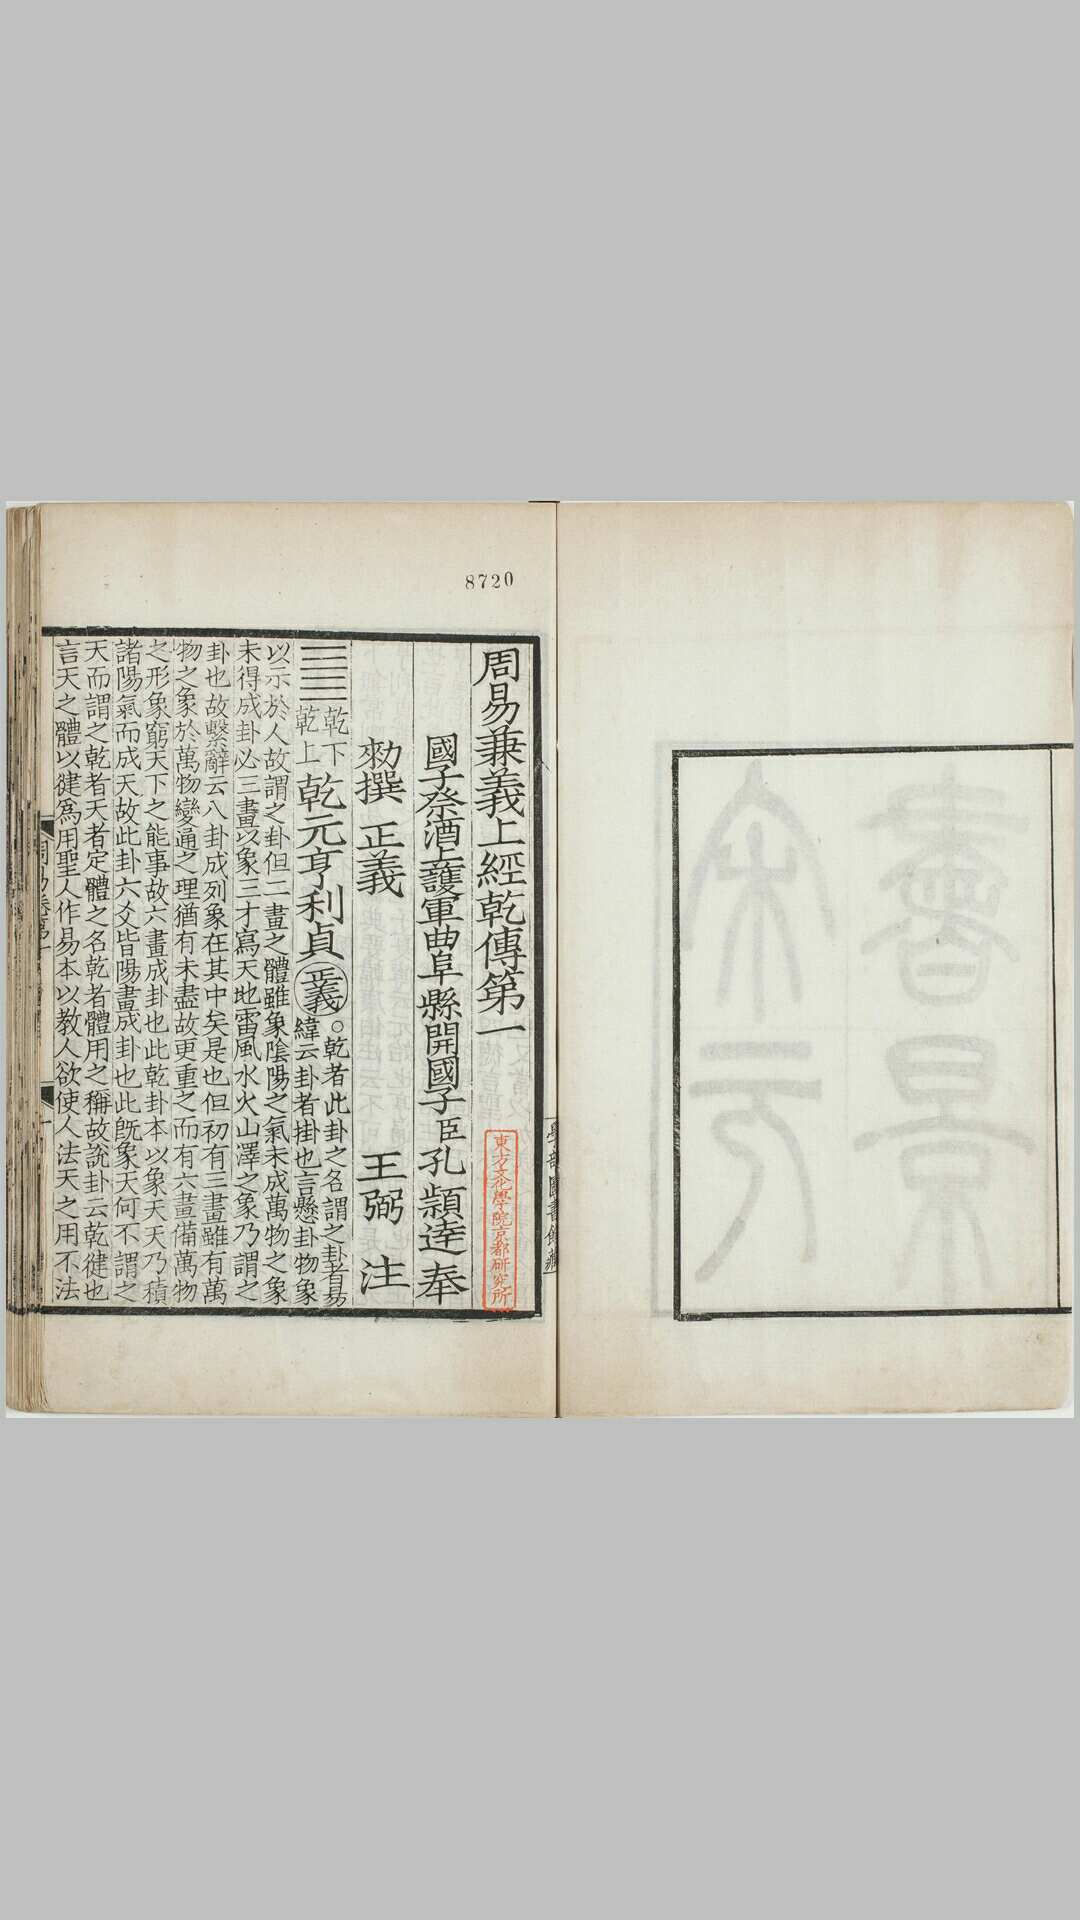 8720
周易兼義上經乾傳第一
國子祭酒上護軍曲阜縣開國子臣孔穎達奉
勑撰 正義 王弼 注
乾下
乾上
乾元亨利貞
正義
○乾者此卦之名謂之卦者易
緯云卦者掛也言懸卦物象
以示於人故謂之卦但二畫之體雖象陰陽之氣未成萬物之象
未得成卦必三畫以象三才寫天地雷風水火山澤之象乃謂之
卦也故繫辭云八卦成列象在其中矣是也但初有三畫雖有萬
物之象於萬物變通之理猶有未盡故更重之而有六畫備萬物
之形象窮天下之能事故六畫成卦也此乾卦本以象天天乃積
諸陽氣而成天故此卦六爻皆陽畫成卦也此旣象天何不謂之
天而謂之乾者天者定體之名乾者體用之稱故說卦云乾健也
言天之體以健爲用聖人作易本以教人欲使人法天之用不法
東方文化學院京都研究所